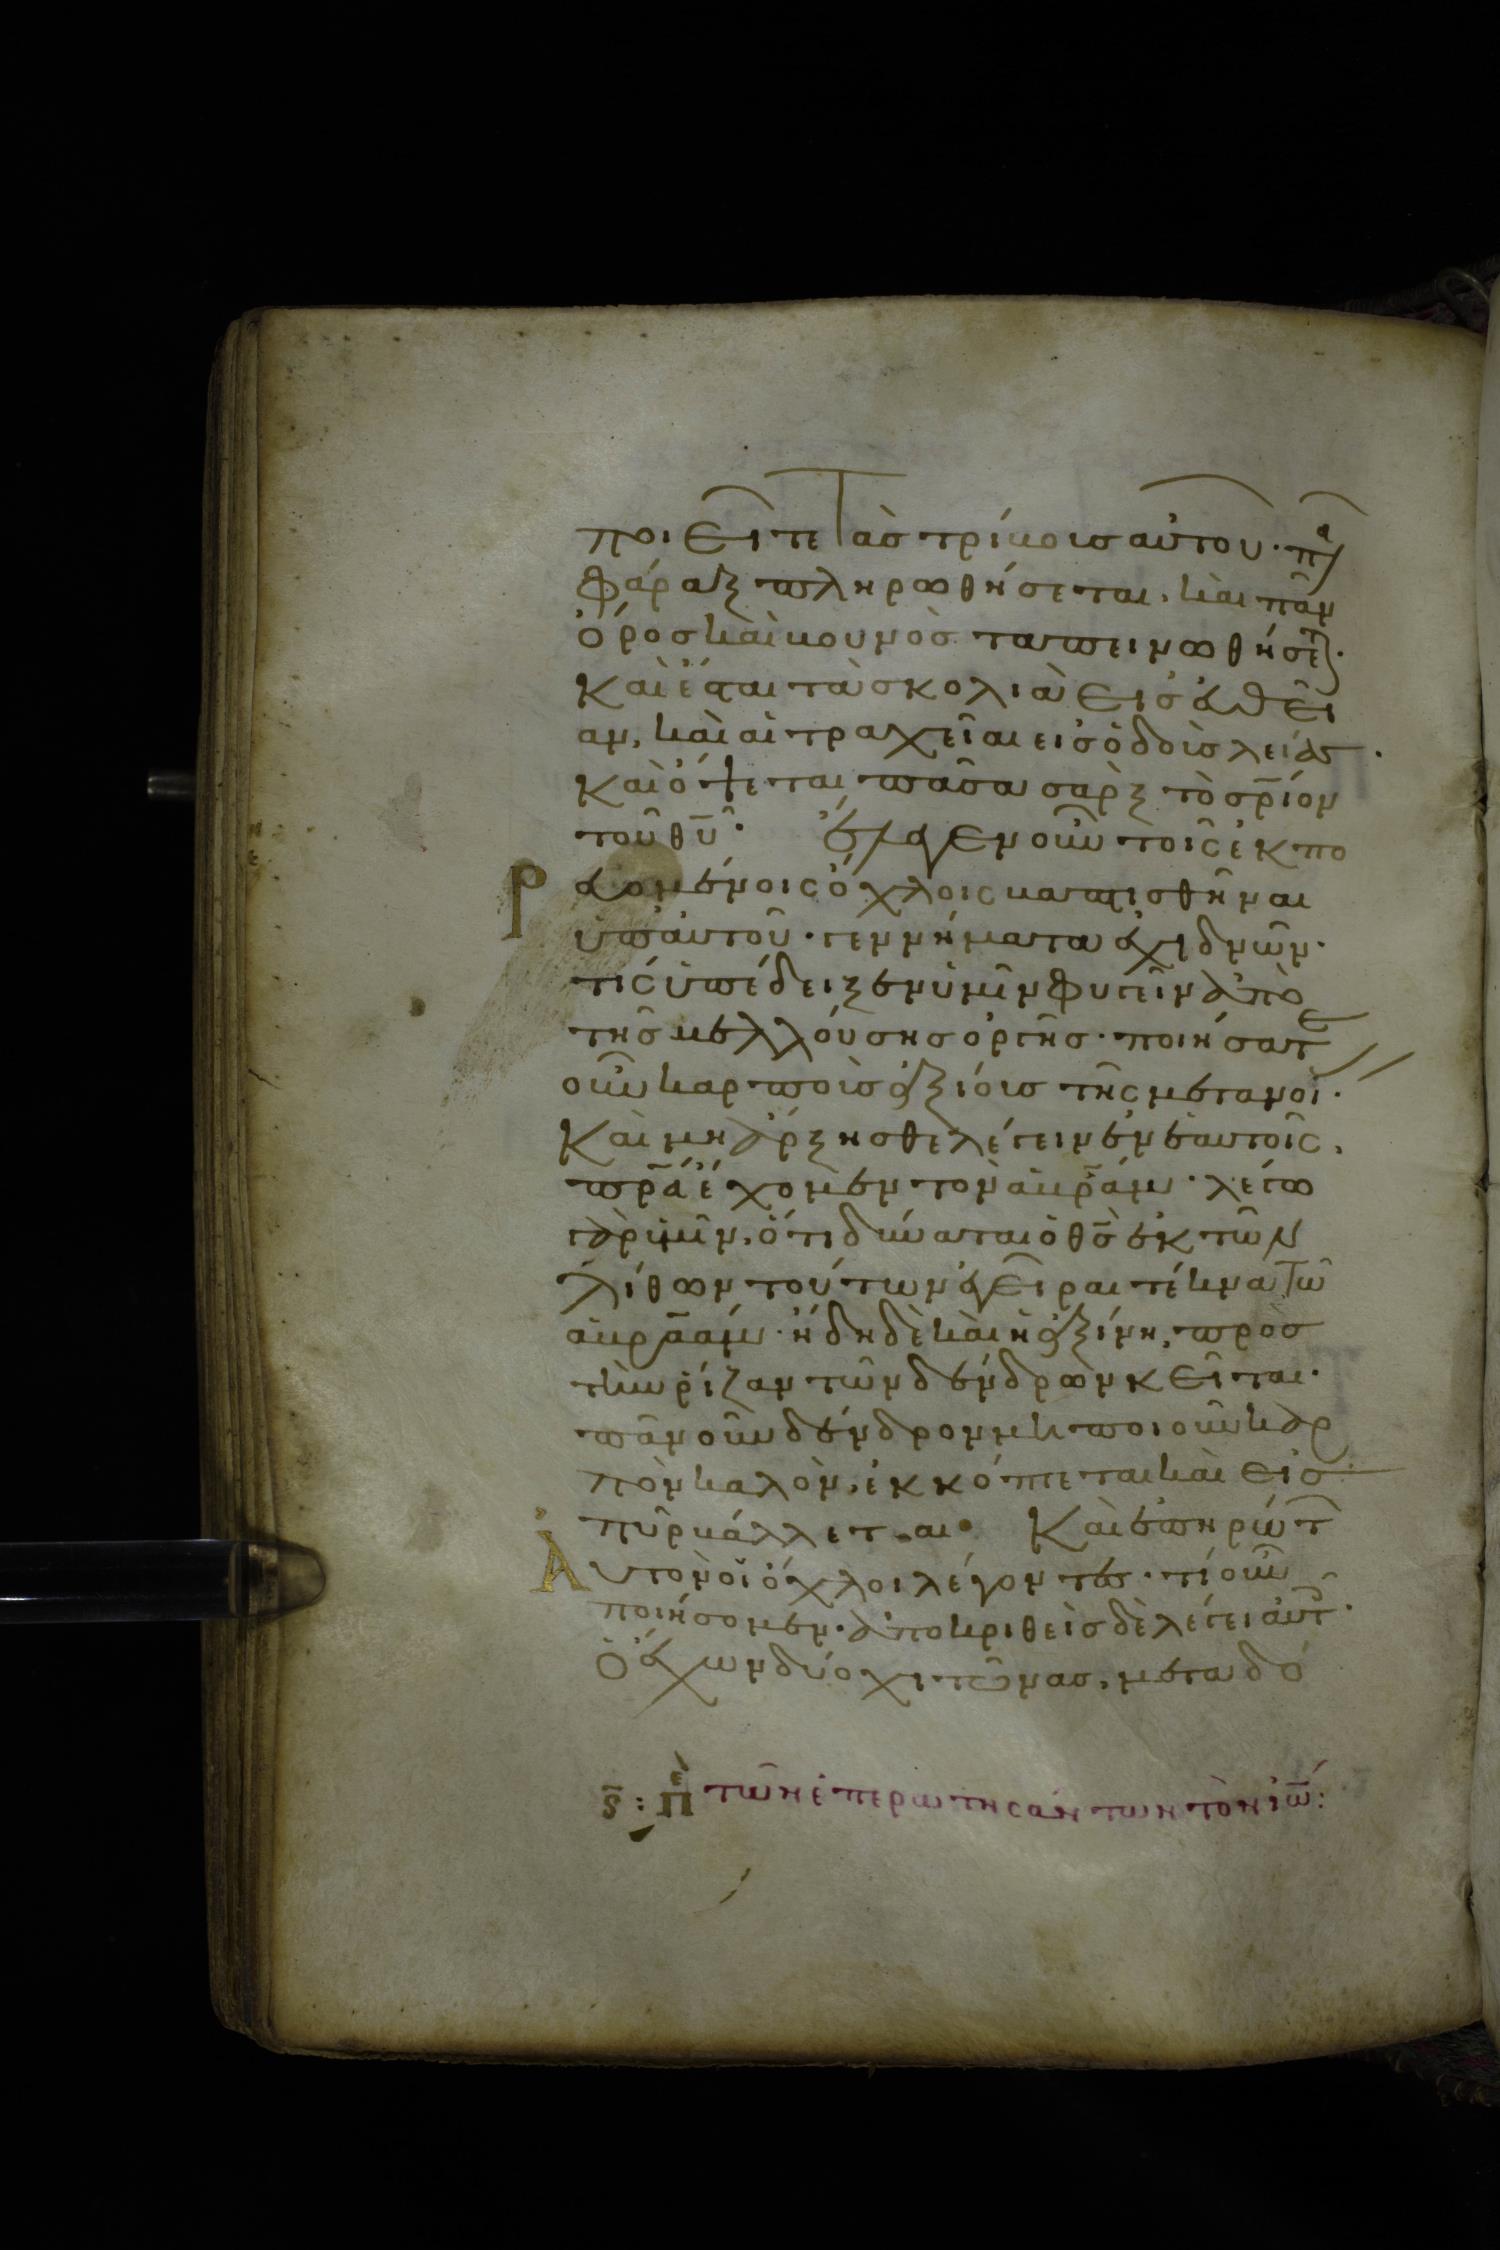 ποιεῖτε τὰς τρίβους αὐτοῦ· πᾶ(σα)
φάραγξ πληρωθήσεται, καὶ πᾶν
ὄρος καὶ βουνὸς ταπεινωθήσετ(αι)·
Καὶ ἔσται τὰ σκολιὰ εἰς εὐθεῖ
αν, καὶ αἱ τραχεῖαι εἰς ὁδοὺς λείας·
Καὶ ὄψεται πᾶσα σὰρξ τὸ σρ̅ίον
τοῦ θυ̅· Ἔλεγεν οὖν τοῖς ἐκπο
ρευομένοις ὄχλοις βαπτισθῆναι
ὑπ' αὐτοῦ· γεννήματα ἐχιδνῶν·
τίς ὑπέδειξεν ὑμῖν φυγεῖν ἀπὸ
τῆς μελλούσης ὀργῆς· ποιήσατε
οὖν καρποὺς ἀξίους τῆς μετανοί(ας)·
Καὶ μὴ ἄρξησθε λέγειν ἐν ἑαυτοῖς,
πρ̅α ἔχομεν τὸν ἀβρ̅άμ· λέγω
γὰρ ὑμῖν, ὅτι δύναται ὁ θς̅ ἐκ τῶν
λίθων τούτων ἐγεῖραι τέκνα τῶ
ἀβραάμ· ἤδη δὲ καὶ ἡ ἀξίνη, πρὸς
τὴν ῥίζαν τῶν δένδρων κεῖται·
πᾶν οὖν δένδρον μὴ ποιοῦν καρ
πὸν καλὸν, ἐκκόπτεται καὶ εἰς
πῦρ βάλλεται· Καὶ ἐπηρώτ(ων)
Αὐτὸν οἱ ὄχλοι λέγοντες· τί οὖν
ποιήσομεν· ἀποκριθεὶς δὲ λέγει αὐτ(οῖς)·
Ὁ ἔχων δύο χιτῶνας, μεταδό
ς̅ : Πε(ρὶ) τῶν ἐπερωτησάντων τὸν ἰω̅: